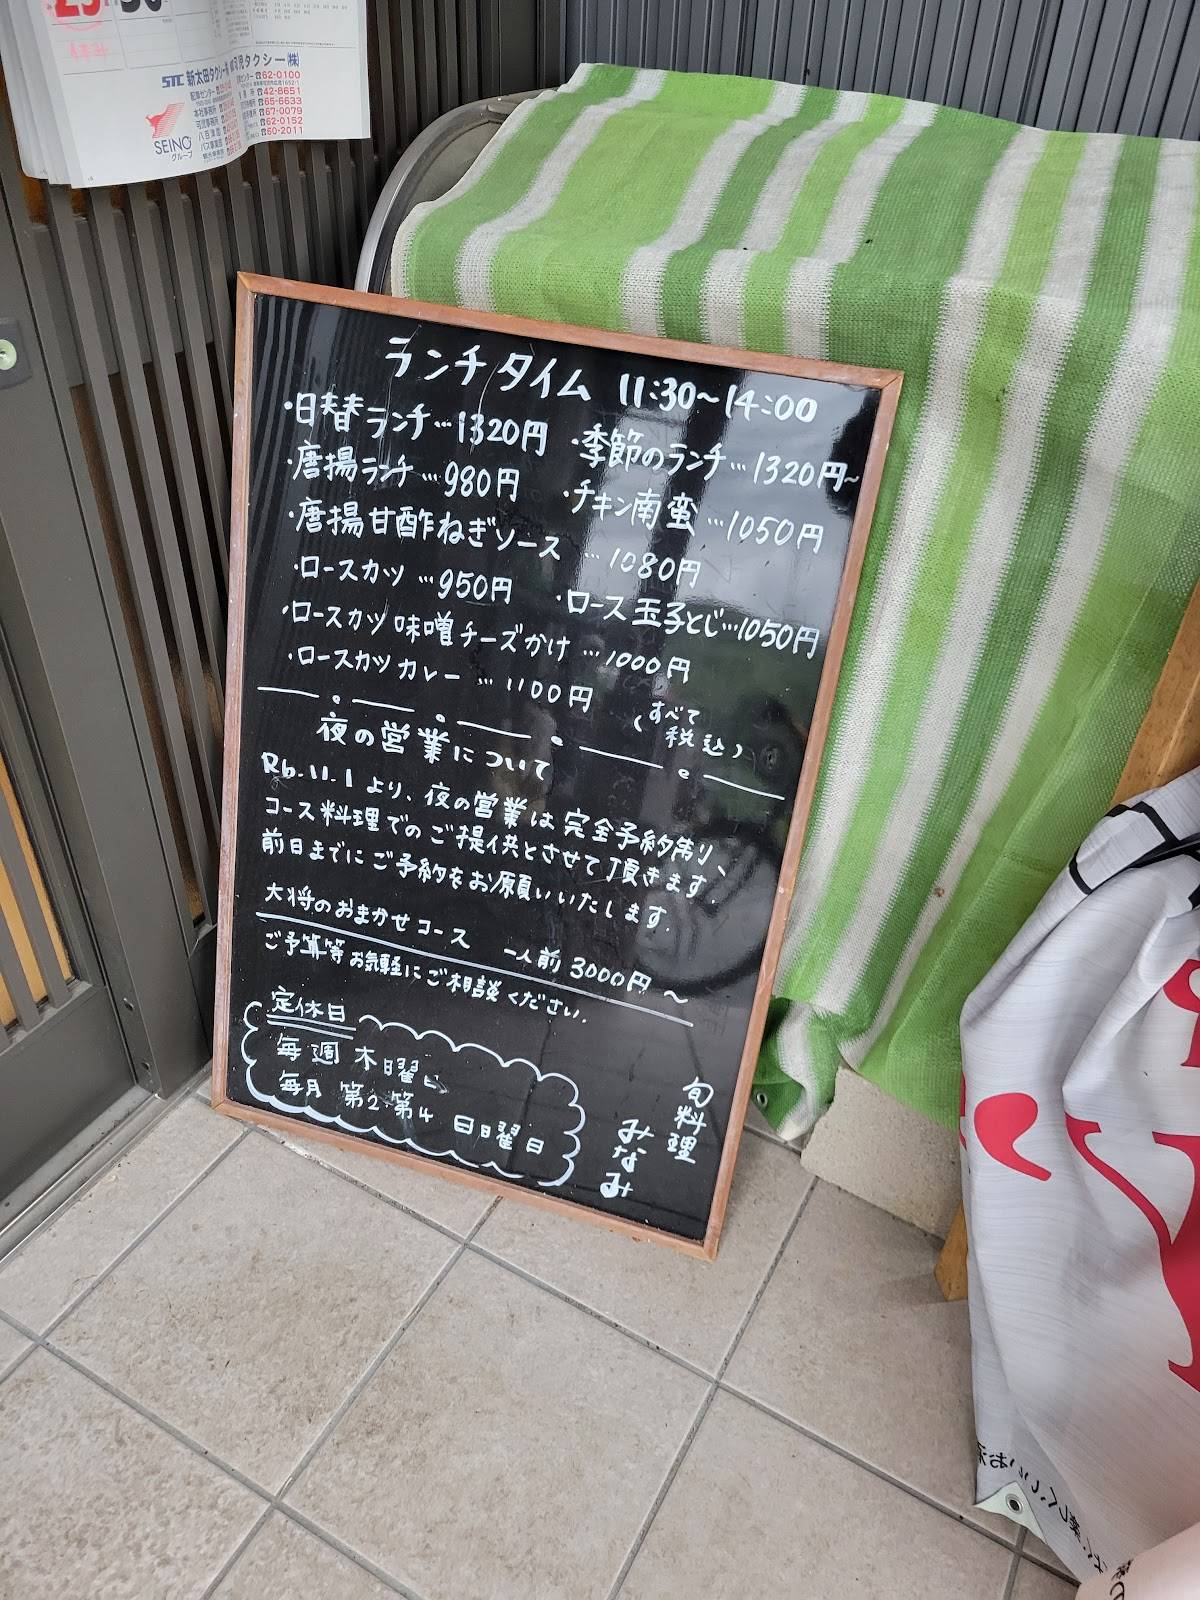 ランチタイム 11:30～14:00
・日替ランチ…1320円 ・季節のランチ…1320円～
・唐揚ランチ…980円 ・チキン南蛮…1050円
・唐揚甘酢ねぎソース…1080円
・ロースカツ…950円 ・ロース玉子とじ…1050円
・ロースカツ味噌チーズかけ…1000円
・ロースカツカレー…1100円
(すべて税込)
夜の営業について
R6.11.1より、夜の営業は完全予約制り、
コース料理でのご提供とさせて頂きます。
前日までにご予約をお願いいたします。
大将のおまかせコース 一人前3000円～
ご予算等お気軽にご相談ください。
定休日
毎週木曜日
毎月第2第4日曜日
旬料理
みなみ
STC 新太田タクシー
タクシー(株)
SEINO
グループ
配車センター
本社事務所
可児事務所
八百津営
バス事業部
☎62-0100
☎42-8651
☎65-6633
☎67-0079
☎62-0152
☎60-2011